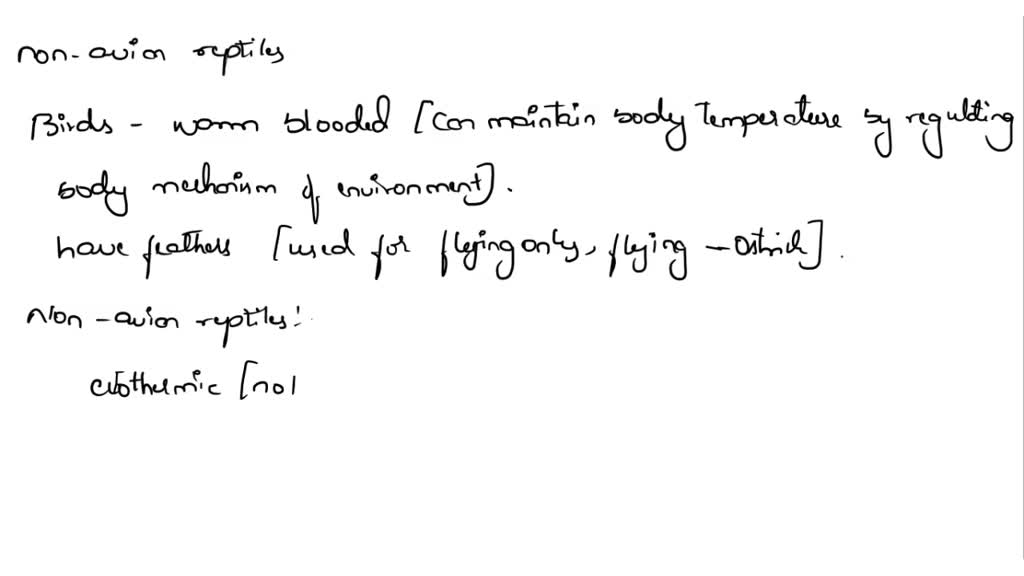 non-avian reptiles
Birds - warm blooded [can maintain body temperature by regulating
body mechanism of environment].
have feathers [used for flying only, flying - Ostrich].
Non-avian reptiles:
ectothermic [not